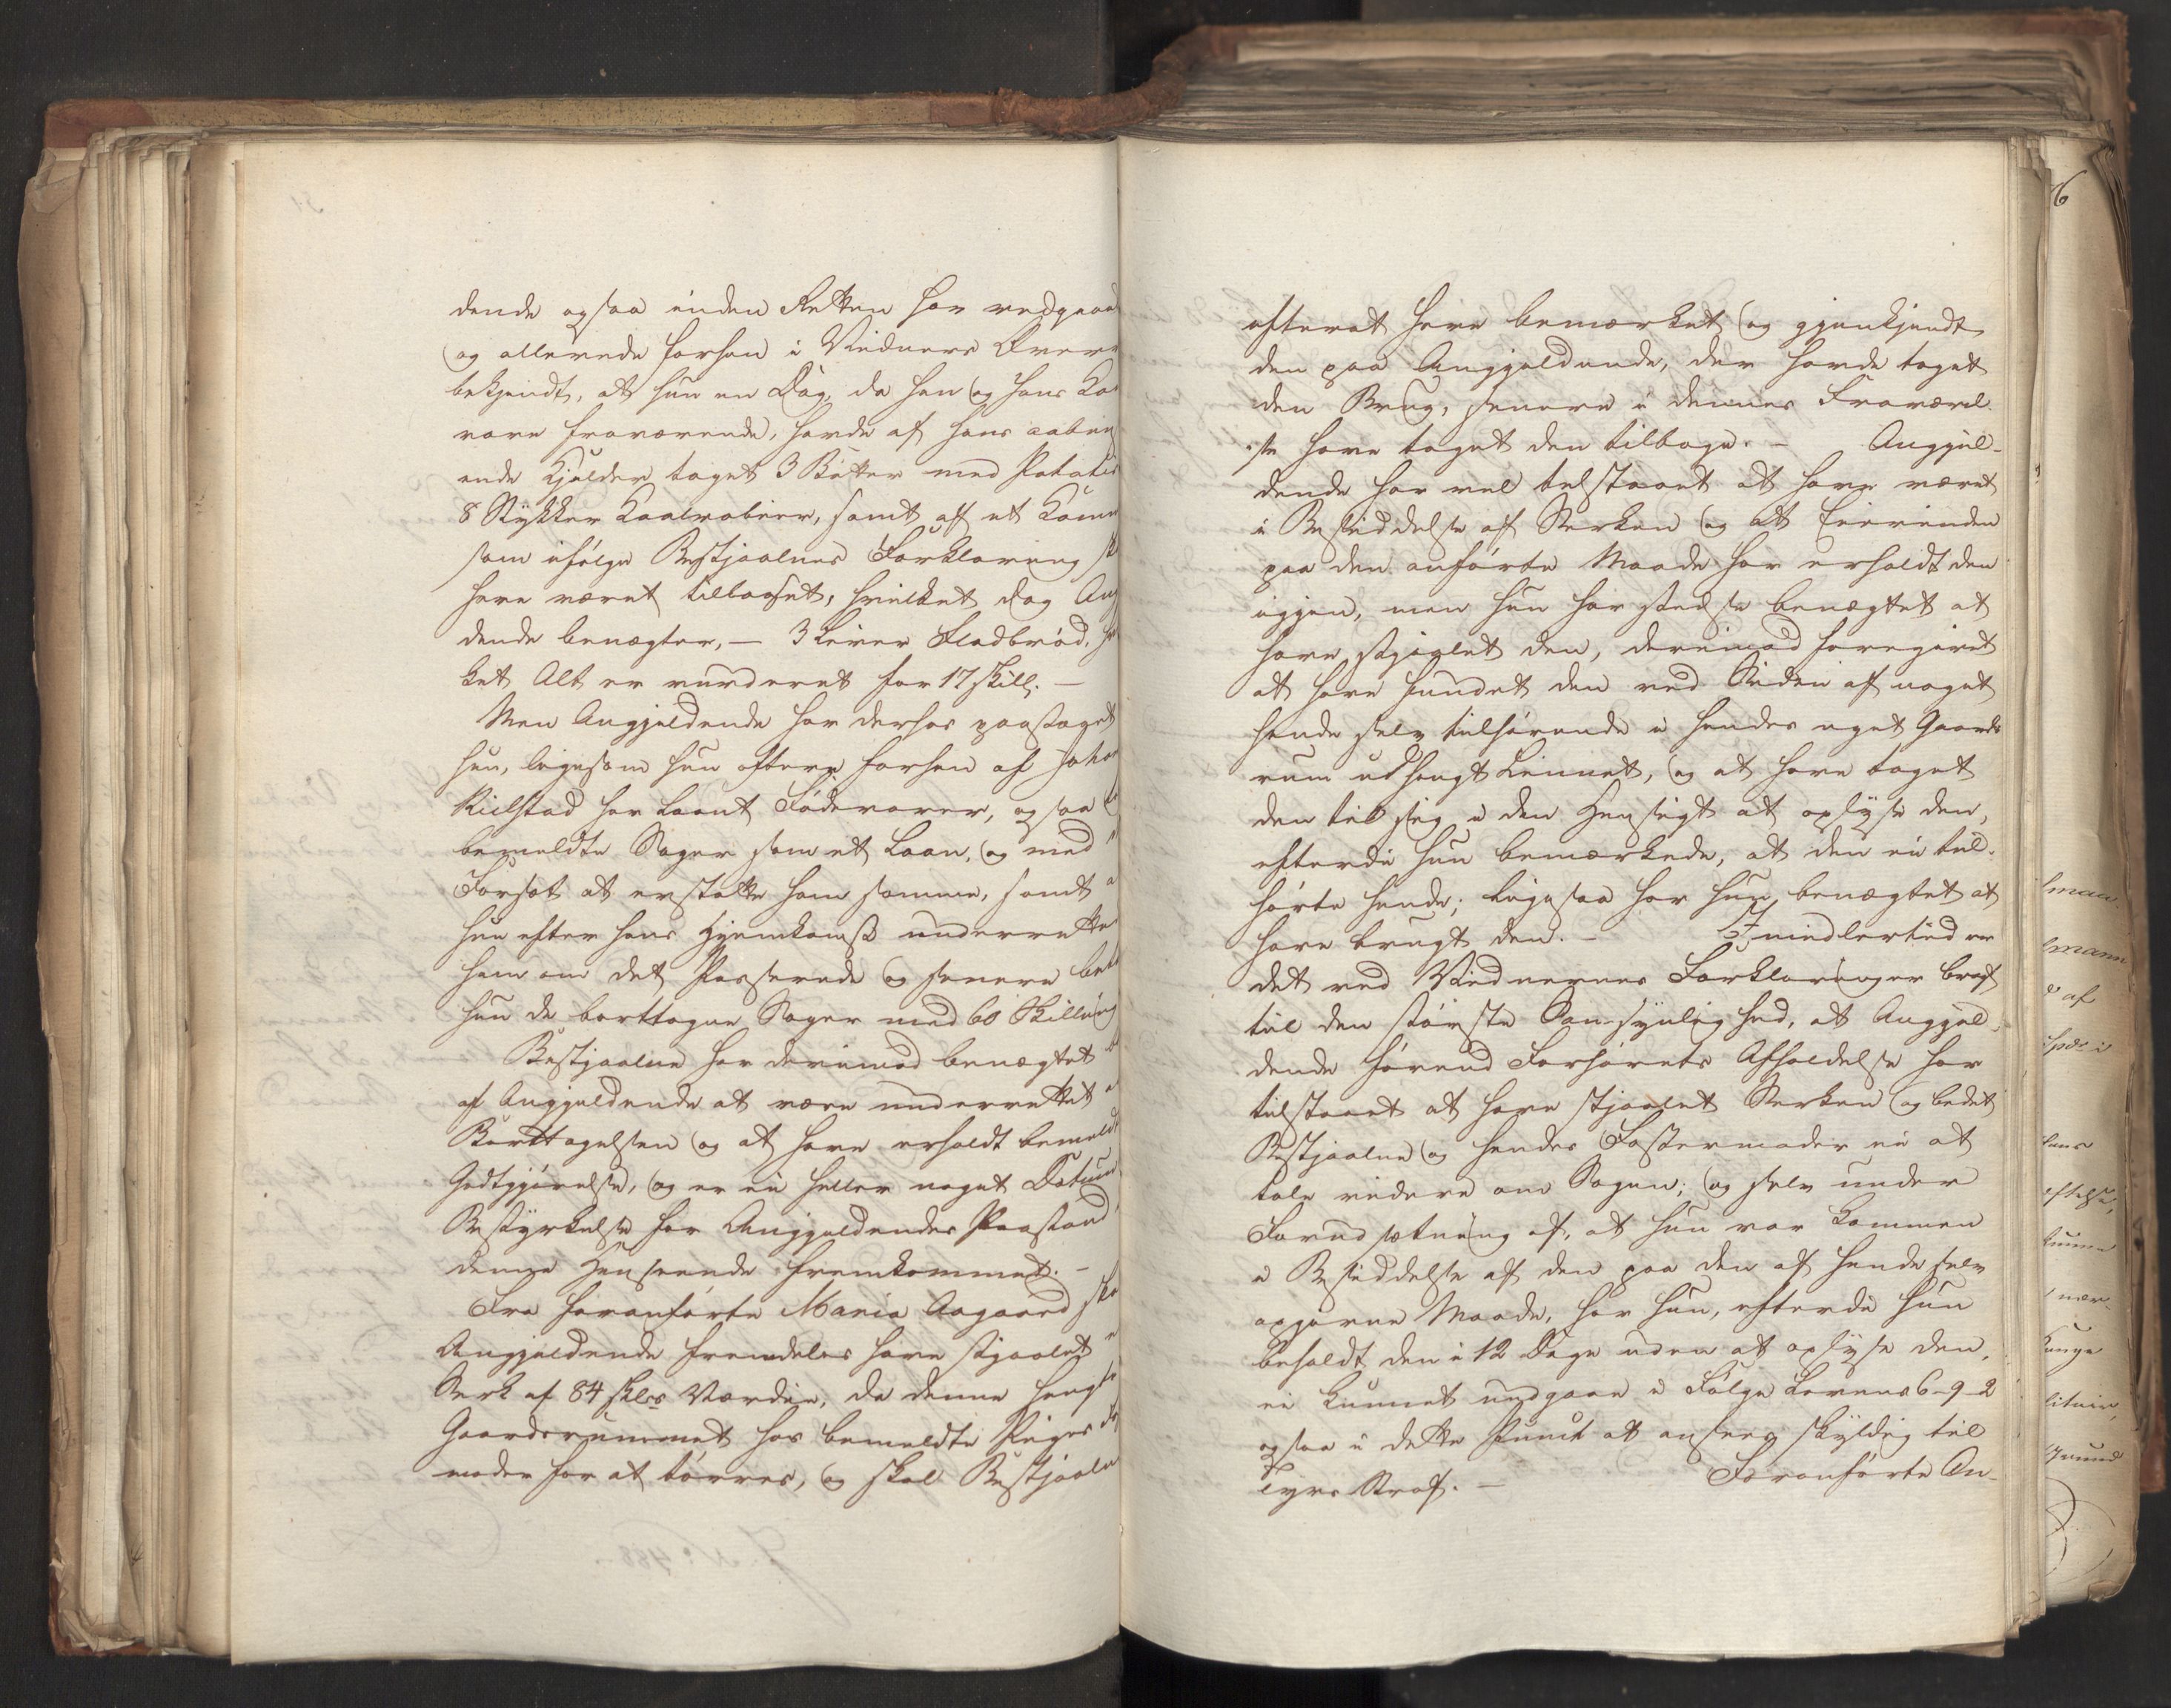 dende ogsaa inden Retten har vedgaaet
og allerede forhen i Vidners Overv
bekjendt, at hun en Dag, da han og hans Ko
vare fraværende, havde af hans aaben
ende Kjelder taget 3 Bøtter med Potatis
8 Stykker Kaalrabier, samt af et Kam
som ifølge Bestjaalnes Forklaring sk
have været tillaaset, hvilket dog An
dende benægter, — 3 Leiver Fladbrød, hv
ket Alt er vurderet for 17 skill. —
Men Angjeldende har derhos paastaaet
hun, ligesom hun oftere forhen af Joha
Kielstad har laant Fødevarer, ogsaa
bemeldte Sager som et Laan, og med
Forsæt at erstatte ham samme, samt a
hun efter hans Hjemkomst underrette
ham om det Passerede og senere beta
hun de borttagne Sager med 60 Skilling
Bestjaalne har derimod benægtet
af Angjeldende at være underrettet
Borttagelsen og at have erholdt bemeldt
Godtgjørelse, og er ei heller noget Datum
Bestyrkelse for Angjeldendes Paastand
denne Henseende fremkommet. —
Fra foranførte Maria Aagaard ska
Angjeldende fremdeles have stjaalet e
Serk af 84 skls Værdie, da denne hængte
Gaardsrummet hos bemeldte Piges Fo
moder for at tørres, og skal Bestjaalne
efterat have bemærket og gjenkjendt
den paa Angjeldende, der havde taget
den Brug, senere i dennes Fraværel-
se have taget den tilbage. — Angjel-
dende har vel tilstaaet at have været
i Besiddelse af Serken og at Eierinden
paa den anførte Maade har erholdt den
igjen, men hun har stedse benægtet at
have stjaalet den, derimod foregivet
at have fundet den ved Siden af noget
hende selv tilhørende i hendes eget Gaards
rum udhængt Linnet, og at have taget
den til sig i den Hensigt at oplyse den,
efterdi hun bemærkede, at den ei til-
hørte hende; ligesaa har hun benægtet at
have brugt den. — Imidlertid er
det ved Vidnernes Forklaringer bragt
til den største Sandsynlighed, at Angjel-
dende førend Forhørets Afholdelse har
tilstaaet at have stjaalet Serken og bedet
Bestjaalne og hendes Fostermoder ei at
tale videre om Sagen; og selv under
Forudsætning af, at hun var kommen
i Besiddelse af den paa den af hende selv
opgivne Maade, har hun, efterdi hun
beholdt den i 12 Dage uden at oplyse den,
ei kunnet undgaae i Følge Lovens 6-9-2
ogsaa i dette Punct at ansees skyldig til
Tyvs Straf. — Foranførte An-
6
lman
mann
af
kunne
unge